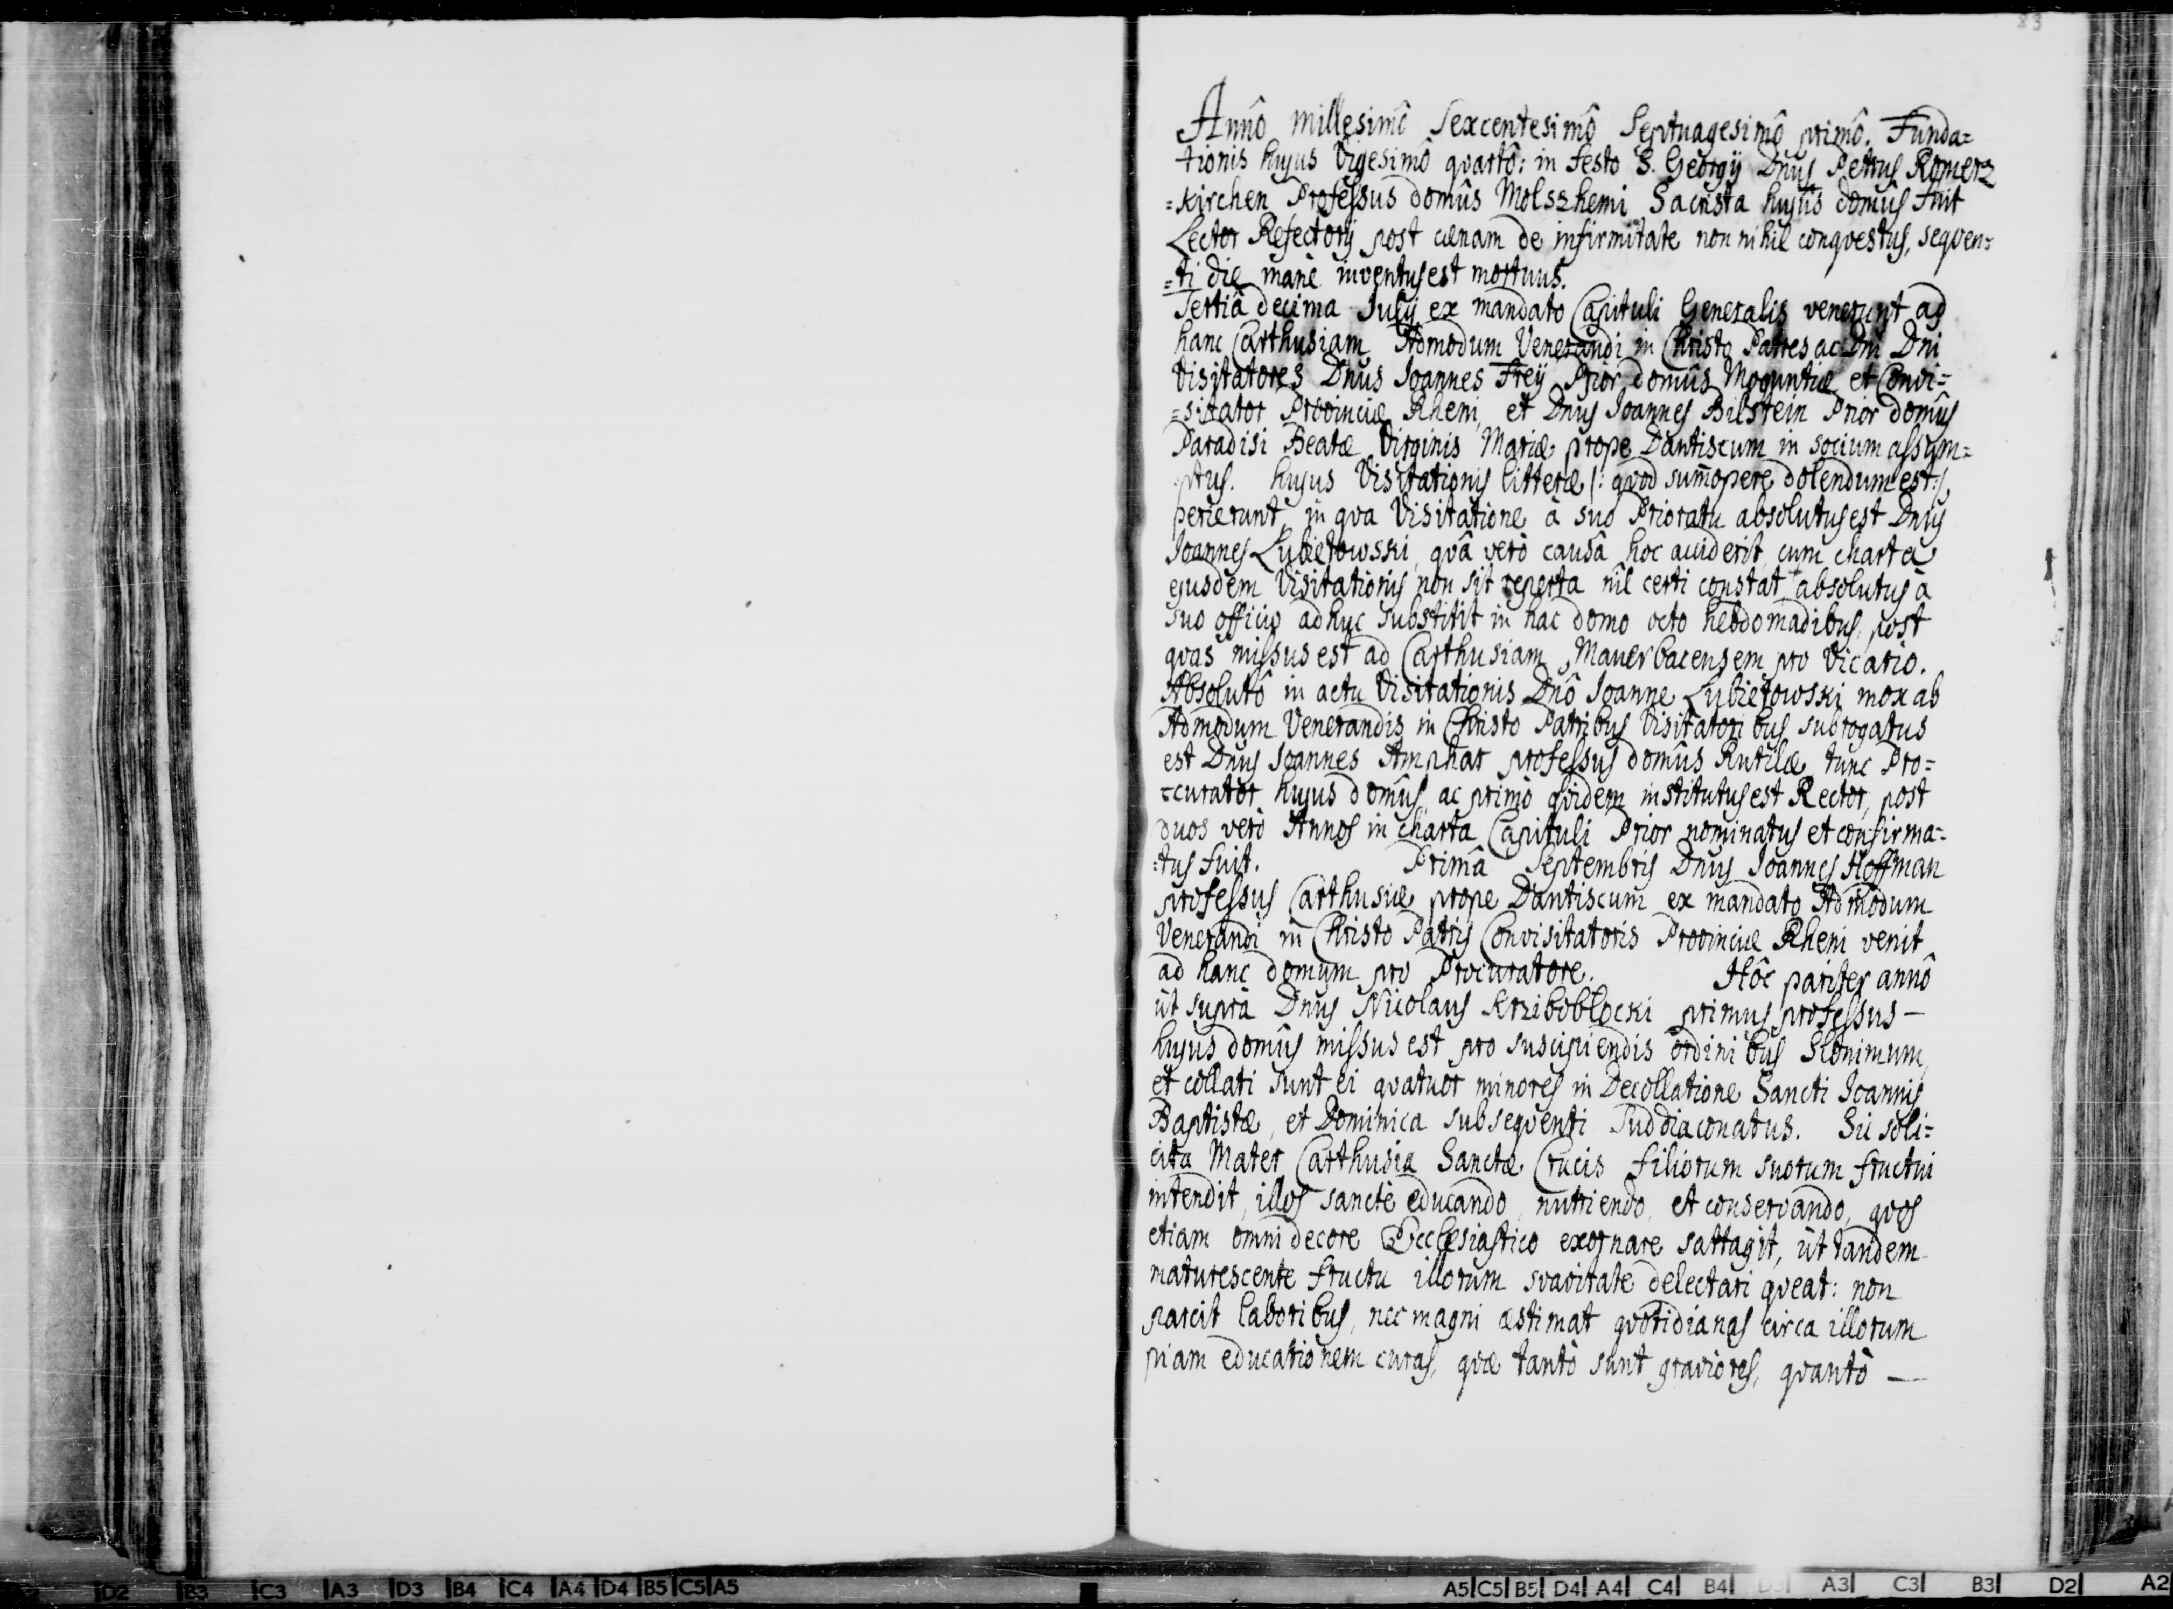 83
Annô millesimô sexcentesimô septuagesimô primô. Funda=
tionis hujus Vigesimô quartô: in festo S. Georgij Dnus Petrus Romerz
=kirchen Professus domûs Molszhemi Sacrista hujus domûs fuit
Lector Refectorij post cœnam de infirmitate non nihil conqvestus, seqven=
=ti die manè inventus est mortuus.
Tertiâ decima Julij ex mandato Capituli Generalis venerunt ad
hanc Carthusiam Admodum Venerandi in Christo Patres ac Dni Dni
Visitatores Dnus Joannes Freÿ Prior domûs Moguntiæ et Convi=
=sitator Provinciæ Rheni, et Dnus Joannes Bilstein Prior domûs
Paradisi Beatæ Virginis Mariæ prope Dantiscum in socium assum=
ptus. hujus Visitationis litteræ /: qvod sumopere dolendum est :/
perierunt, in qva Visitatione à suo Prioratu absolutus est Dnus
Joannes Lubietowski, qvâ verò causâ hoc acciderit, cum charta
ejusdem Visitationis non sit reperta nil certi constat absolutus à
suo officio adhuc substitit in hac domo octo hebdomadibus, post
qvas missus est ad Carthusiam Mauerbacensem pro Vicario.
Absolutô in actu Visitationis Dnô Joanne Lubietowski mox ab
Admodum Venerandis in Christo Patribus Visitatoribus subrogatus
est Dnus Joannes Amphar professus domûs Rutilæ tunc Pro=
=curator hujus domûs, ac primò qvidem institutus est Rector, post
duos verò Annos in charta Capituli Prior nominatus et confirma=
=tus fuit. Primâ Septembris Dnus Joannes Hoffman
professus Carthusiæ prope Dantiscum ex mandato Admodum
Venerandi in Christo Patris Convisitatoris Provinciæ Rheni venit
ad hanc domum pro Procuratore. Hôc pariter annô
ùt suprà Dnus Nicolaus Krziboblocki primus professus —
hujus domûs missus est pro suscipiendis ordinibus Slonimum,
et collati sunt ei qvatuor minores in Decollatione Sancti Joannis
Baptistæ, et Dominica subseqventi Subdiaconatus. Sic soli=
cita Mater Carthusia Sanctæ Crucis filiorum suorum fructui
intendit, illos sanctè educando, nutriendo, et conservando, qvos
etiam omni decore Ecclesiastico exornare sattagit, ùt tandem
maturescente fructu illorum svavitate delectari qveat: non
parcit laboribus, nec magni æstimat qvotidianas circa illorum
piam educationem curas, qvæ tantò sunt graviores, qvantò —
D2 B3 C3 A3 D3 B4 C4 A4 D4 B5 C5 A5
A5 C5 B5 D4 A4 C4 B4 D3 A3 C3 B3 D2 A2